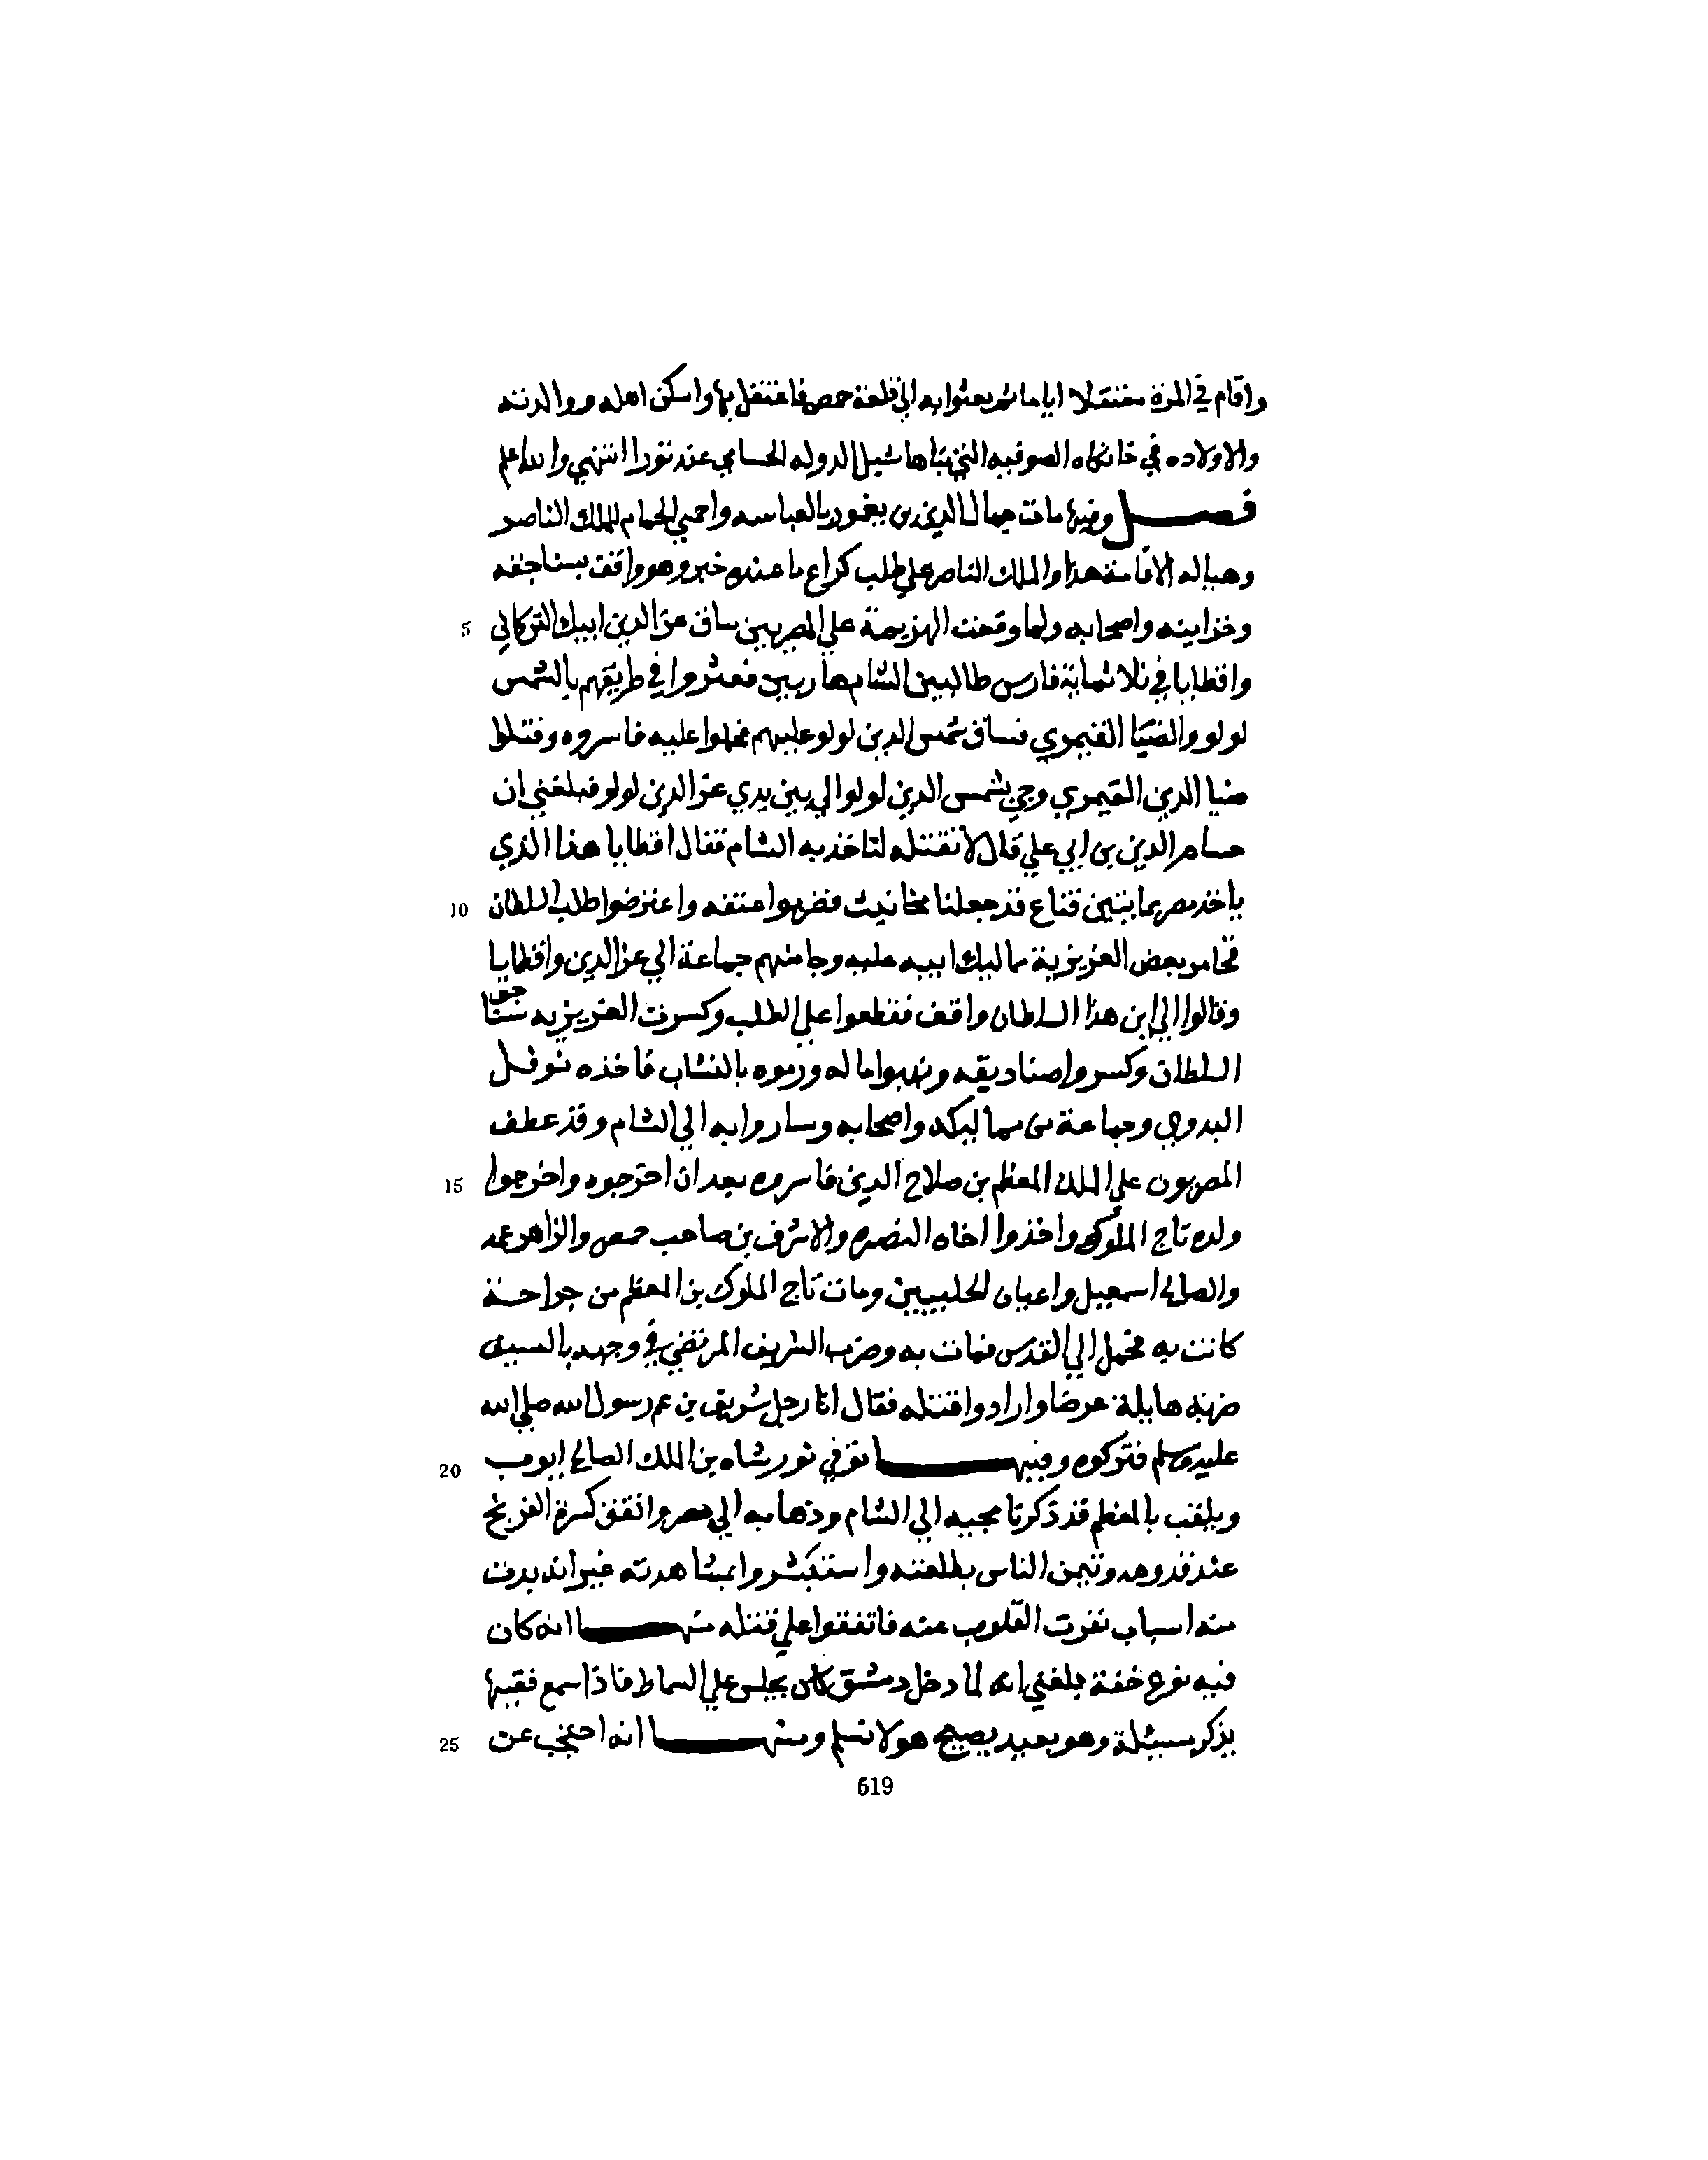 واقام في المزة معتقلا اياما ثم بعثوا به الي قلعة حمص فاعتقل بها واسكن اهله ووالدته
والاولاده في خانكاه الصوفيه التي بناها شبل الدوله الحسامي عند ثورا انتهي والله اعلم
فصل وفيها مات جمال الدين بن يغمور بالعباسه واحمي الحمام للملك الناصر
وهياله الاقامة هذا والملك الناصر علي طلب كراع ما عنده خبر وهو واقف بسناجقه
5 وخزاينه واصحابه ولما وقعت الهزيمة علي المصريين ساق عز الدين ايبك التركماني
واقطايا في ثلاثماية فارس طالبين الشام هاربين فعثروا في طريقهم بالشمس
لولو والضيا القيمري فساق شمس الدين لولو عليهم فحملوا عليه فاسروه وقتلوا
ضيا الدين القيمري وجي بشمس الدين لولو الي بين يدي عز الدين لولو فبلغني ان
حسام الدين بن ابي علي قال لا نقتله لناخذ به الشام فقال اقطايا هذا الذي
10 ياخذ مصر بمايتين قناع قد جعلنا مخانيث فضربوا عنقه واعترضوا طلب السلطان
فخامر بعض العزيزية مماليك ابيه عليه وجا منهم جماعة الي عز الدين واقطايا
وقالوا الي اين هذا السلطان واقف فقطعوا علي الطلب وكسرت العزيزيه سناجق
السلطان وكسروا صناديقه ونهبوا ماله ورموه بالنشاب فاخذه نوفل
البدوي وجماعة من مماليكه واصحابه وساروا به الي الشام وقد عطف
15 المصريون علي الملك المعظم بن صلاح الدين فاسروه بعد ان اخرجوه واخرجوا
ولده تاج الملوك واخذوا اخاه النصره والاشرف بن صاحب حمص والزاهر عمه
والصالح اسمعيل واعيان الحلبيين ومات تاج الملوك بن المعظم من جراحة
كانت به فحمل الي القدس فمات به وضرب الشريف المرتضي في وجهه بالسيف
ضربة هايلة عرضا وارادوا قتله فقال انا رجل شريف بن عم رسول الله صلي الله
20 عليه وسلم فتركوه وفيها توفي تورشاه بن الملك الصالح ايوب
ويلقب بالمعظم قد ذكرنا مجيه الي الشام وذهابه الي مصر واتفق كسرة الفرنج
عند قدومه وتيمن الناس بطلعته واستبشروا بمشاهدته غير انه بدت
منه اسباب نفرت القلوب عنه فاتفقوا علي قتله منها انه كان
فيه نوع خفة بلغني انه لما دخل دمشق كان يجلس علي السماط فاذا سمع فقيها
25 يذكر مسيلة وهو بعيد يصيح هو لا نسلم ومنها انه احتجب عن
519